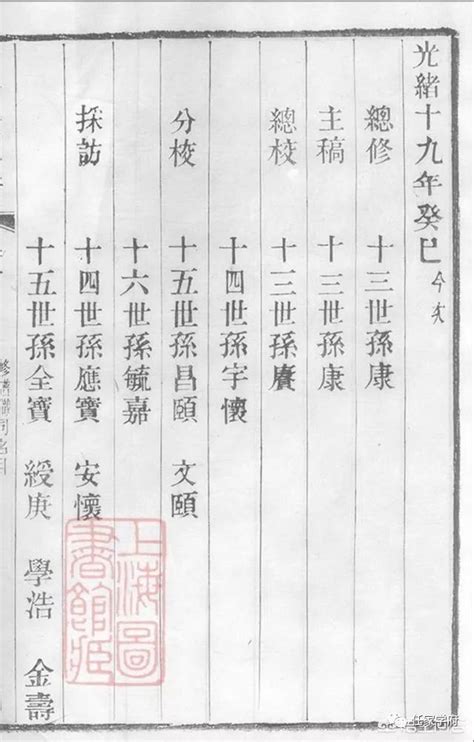 光緒十九年癸巳 今次
總修 十三世孫康
主稿 十三世孫康
總校 十三世孫賡
十四世孫字懷
分校 十五世孫昌頤 文頤
十六世孫毓嘉
採訪 十四世孫應寶 安懷
十五世孫全寶 綬庚 學浩 金壽
上海圖書館藏
任家学府